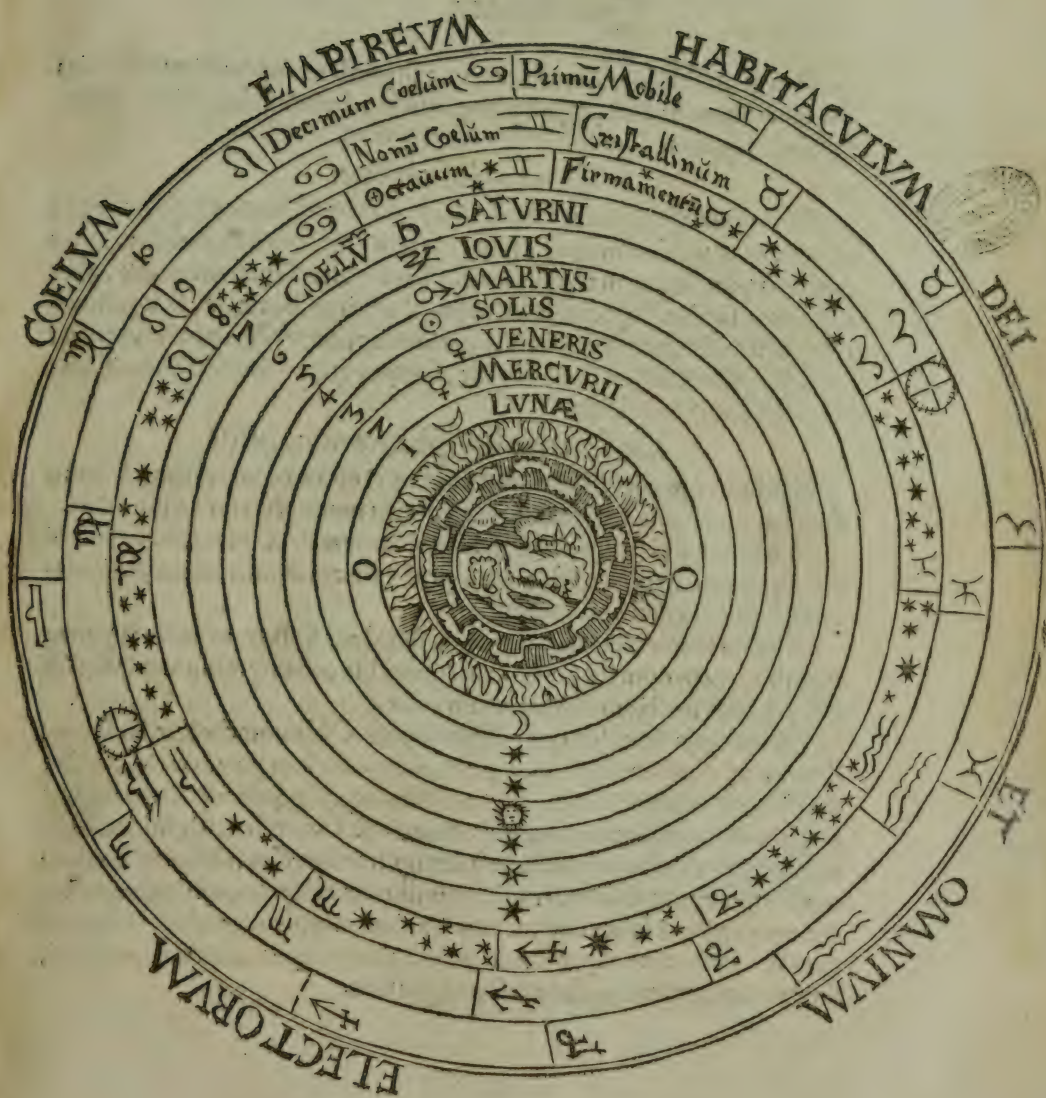 COELVM EMPIREVM HABITACVLVM DEI ET OMNIVM ELECTORVM
Decimŭm Coelŭm ♋ Primū Mobile ♊
10
♋ Nonū Coelŭm ♊ Cristallinŭm ♉
9
♋ Octauum ♊ Firmamentū ♉
8
COELV̄ ♄ SATVRNI
7
♃ IOVIS
6
♂ MARTIS
5
☉ SOLIS
4
♀ VENERIS
3
☿ MERCVRII
2
☽ LVNÆ
1